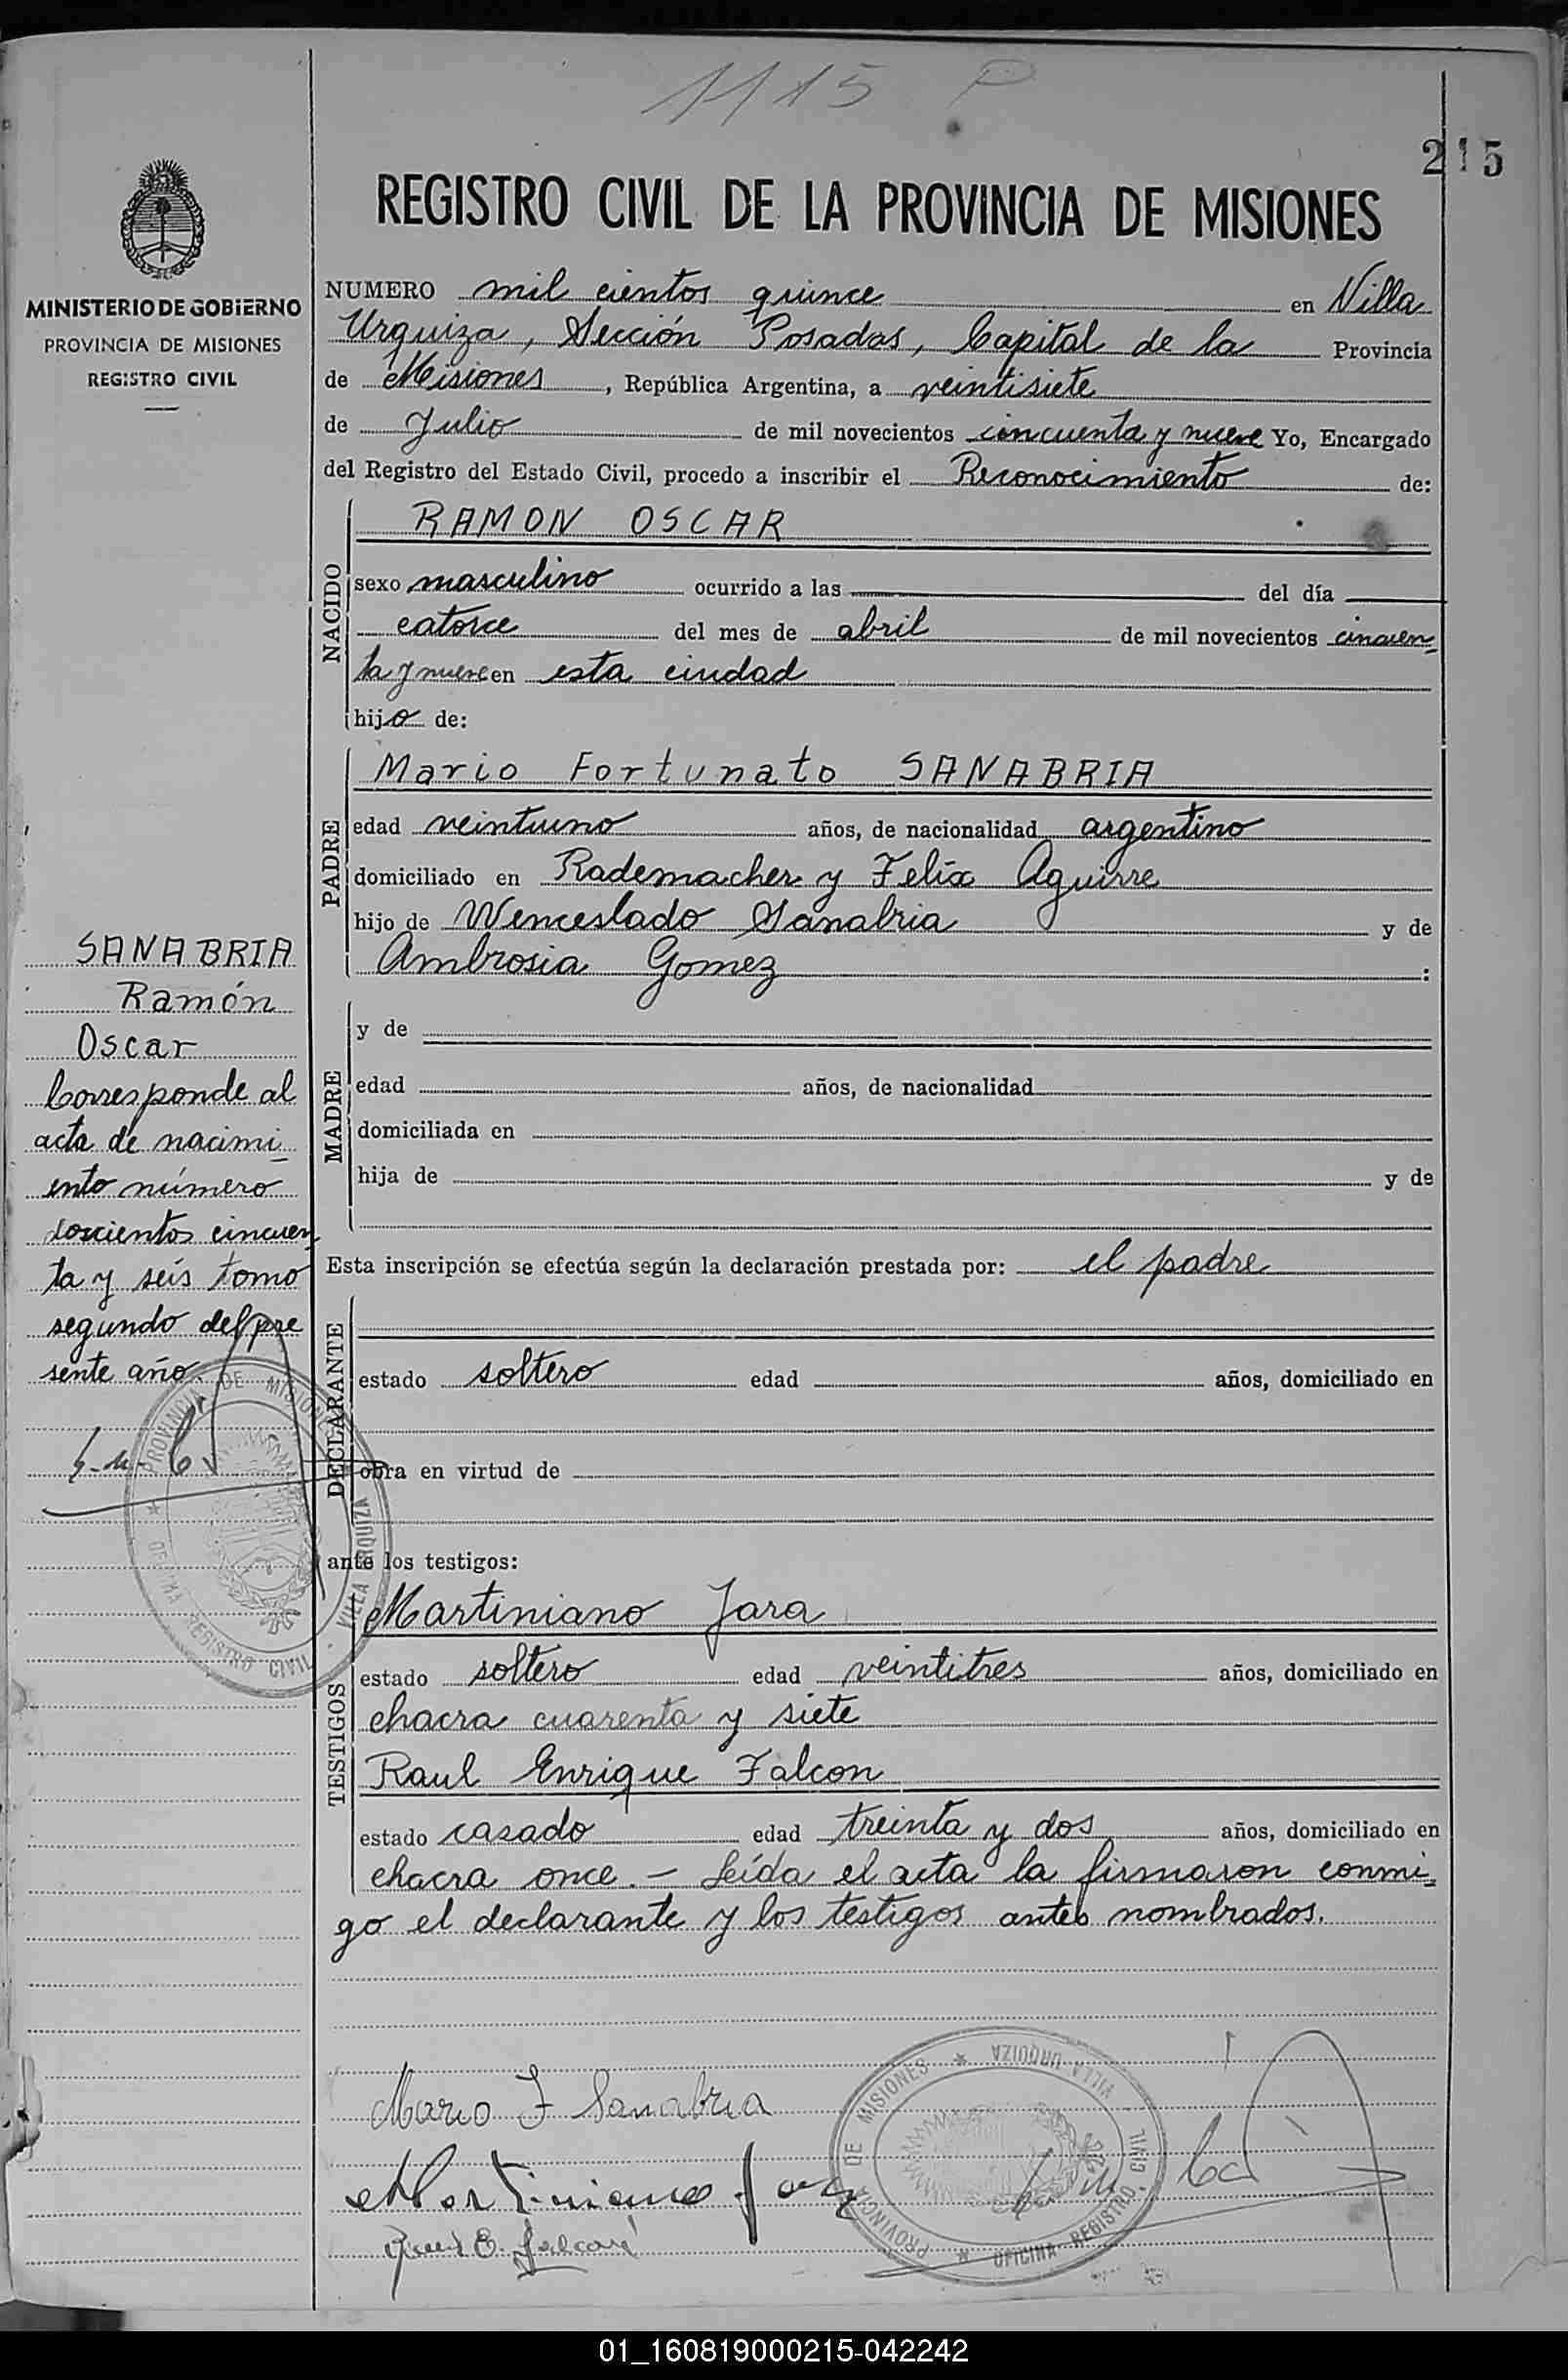 1115 P
215
REGISTRO CIVIL DE LA PROVINCIA DE MISIONES
MINISTERIO DE GOBIERNO
PROVINCIA DE MISIONES
REGISTRO CIVIL
NUMERO mil cientos quince en Villa
Urquiza, Sección Posadas, Capital de la Provincia
de Misiones, República Argentina, a veintisiete
de Julio de mil novecientos cincuenta y nueve Yo, Encargado
del Registro del Estado Civil, procedo a inscribir el Reconocimiento de:
NACIDO
RAMON OSCAR
sexo masculino ocurrido a las del día
catorce del mes de abril de mil novecientos cincuen
ta y nueve en esta ciudad
hijo de:
PADRE
Mario Fortunato SANABRIA
edad veintiuno años, de nacionalidad argentino
domiciliado en Rademacher y Felix Aguirre
hijo de Wenceslado Sanabria y de
Ambrosia Gomez :
MADRE
y de
edad años, de nacionalidad
domiciliada en
hija de y de
Esta inscripción se efectúa según la declaración prestada por: el padre
DECLARANTE
estado soltero edad años, domiciliado en
obra en virtud de
ante los testigos:
TESTIGOS
Martiniano Jara
estado soltero edad veintitres años, domiciliado en
chacra cuarenta y siete
Raul Enrique Falcon
estado casado edad treinta y dos años, domiciliado en
chacra once.- Leída el acta la firmaron conmi-
go el declarante y los testigos antes nombrados.
SANABRIA
Ramón
Oscar
Corresponde al
acta de nacimi-
ento número
doscientos cincuen-
ta y seis tomo
segundo del pre
sente año.
PROVINCIA DE MISIONES
VILLA URQUIZA
OFICINA REGISTRO CIVIL
Mario F Sanabria
Martiniano Jara
Raul E. Falcon
PROVINCIA DE MISIONES
VILLA URQUIZA
OFICINA REGISTRO CIVIL
01_160819000215-042242